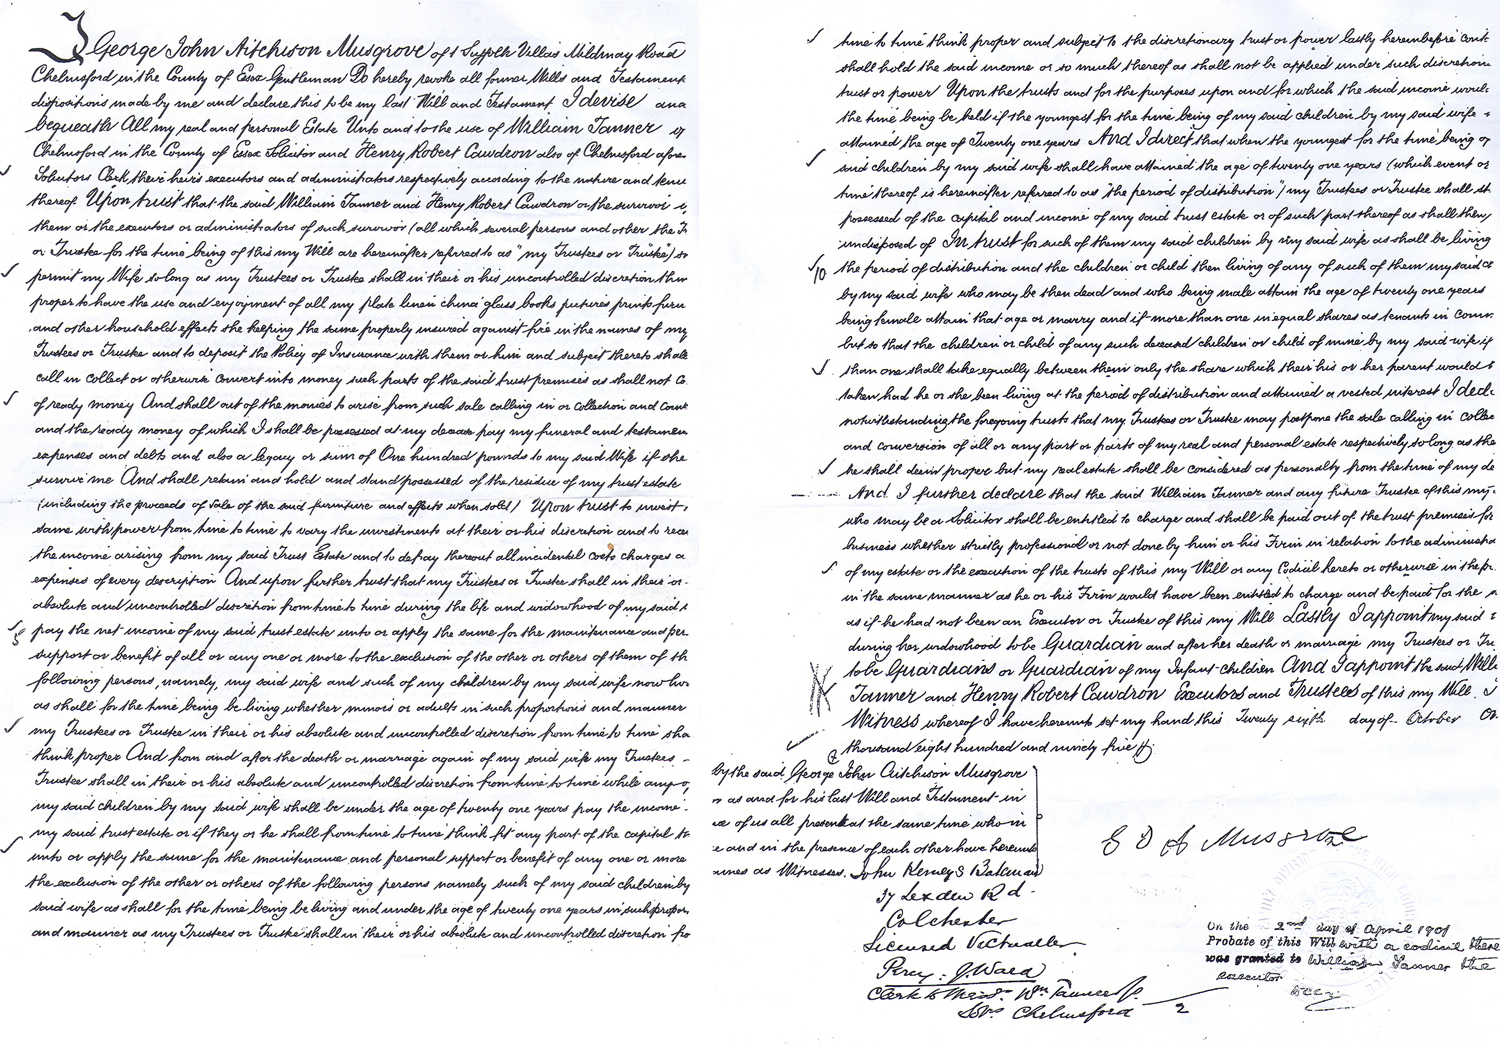 I George John Aitchison Musgrove of 1 Suffolk Villas Mildmay Road
Chelmsford in the County of Essex Gentleman Do hereby revoke all former Wills and Testament
dispositions made by me and declare this to be my last Will and Testament I devise and
bequeath All my real and personal Estate Unto and to the use of William Tanner of
Chelmsford in the County of Essex Solicitor and Henry Robert Cawdron also of Chelmsford afore
Solicitors Clerk their heirs executors and administrators respectively according to the nature and tenu
thereof Upon trust that the said William Tanner and Henry Robert Cawdron or the survivor
them or the executors or administrators of such survivor (all which several persons and other the Tr
or Trustee for the time being of this my Will are hereinafter referred to as "my Trustees or Trustee") do
permit my Wife so long as my Trustees or Trustee shall in their or his uncontrolled discretion thin
proper to have the use and enjoyment of all my plate linen china glass books pictures prints furn
and other household effects she keeping the same properly insured against fire in the names of my
Trustees or Trustee and to deposit the Policy of Insurance with them or him and subject thereto shall
call in collect or otherwise convert into money such parts of the said trust premises as shall not co
of ready money And shall out of the monies to arise from such sale calling in or collection and conv
and the ready money of which I shall be possessed at my decease pay my funeral and testamen
expenses and debts and also a legacy or sum of One hundred pounds to my said Wife if she
survive me And shall retain and hold and stand possessed of the residue of my trust estate
(including the proceeds of sale of the said furniture and effects when sold) Upon trust to invest
same with power from time to time to vary the investments at their or his discretion and to rece
the income arising from my said Trust Estate and to defray thereout all incidental costs charges a
expenses of every description And upon further trust that my Trustees or Trustee shall in their or
absolute and uncontrolled discretion from time to time during the life and widowhood of my said
5 pay the net income of my said trust estate unto or apply the same for the maintenance and per
support or benefit of all or any one or more to the exclusion of the other or others of them of th
following persons, namely, my said wife and such of my children by my said wife now livi
as shall for the time being be living whether minors or adults in such proportions and manner
my Trustees or Trustee in their or his absolute and uncontrolled discretion from time to time sha
think proper And from and after the death or marriage again of my said wife my Trustees
Trustee shall in their or his absolute and uncontrolled discretion from time to time while any o
my said children by my said wife shall be under the age of twenty one years pay the income
my said trust estate or if they or he shall from time to time think fit any part of the capital th
unto or apply the same for the maintenance and personal support or benefit of any one or more
the exclusion of the other or others of the following persons namely such of my said children by
said wife as shall for the time being be living and under the age of twenty one years in such propor
and manner as my Trustees or Trustee shall in their or his absolute and uncontrolled discretion fro
time to time think proper and subject to the discretionary trust or power lastly hereinbefore cont
shall hold the said income or so much thereof as shall not be applied under such discretion
trust or power Upon the trusts and for the purposes upon and for which the said income would
the time being be held if the youngest for the time being of my said children by my said wife
attained the age of Twenty one years And I direct that when the youngest for the time being of
said children by my said wife shall have attained the age of twenty one years (which event or
time thereof is hereinafter referred to as 'the period of distribution') my Trustees or Trustee shall st
possessed of the capital and income of my said trust estate or of such part thereof as shall then
undisposed of In trust for such of them my said children by my said wife as shall be living
10 the period of distribution and the children or child then living of any of such of them my said c
by my said wife who may be then dead and who being male attain the age of twenty one years
being female attain that age or marry and if more than one in equal shares as tenants in comm
but so that the children or child of any such deceased children or child of mine by my said wife if
than one shall take equally between them only the share which their his or her parent would
taken had he or she been living at the period of distribution and attained a vested interest I decl
notwithstanding the foregoing trusts that my Trustees or Trustee may postpone the sale calling in colle
and conversion of all or any part or parts of my real and personal estate respectively so long as the
he shall deem proper but my real estate shall be considered as personalty from the time of my de
And I further declare that the said William Tanner and any future Trustee of this my
who may be a Solicitor shall be entitled to charge and shall be paid out of the trust premises for
business whether strictly professional or not done by him or his Firm in relation to the administra
of my estate or the execution of the trusts of this my Will or any Codicil hereto or otherwise in the pr
in the same manner as he or his Firm would have been entitled to charge and be paid for the
as if he had not been an Executor or Trustee of this my Will Lastly I appoint my said
during her widowhood to be Guardian and after her death or marriage my Trustees or Tru
to be Guardians or Guardian of my Infant children And I appoint the said Willi
Tanner and Henry Robert Cawdron Executors and Trustees of this my Will.
Witness whereof I have hereunto set my hand this Twenty sixth day of October On
thousand eight hundred and ninety five
by the said George John Aitchison Musgrove
as and for his last Will and Testament in
of us all present at the same time who in
and in the presence of each other have hereunto
as Witnesses. John Kemeys Bateman
37 Lexden Rd
Colchester
Licensed Victualler
Percy J. Ward
Clerk to Messrs Wm Tanner
Solrs Chelmsford
2
G J A Musgrove
On the 2nd day of April 1901
Probate of this Will with a codicil there
was granted to William Tanner the
executor